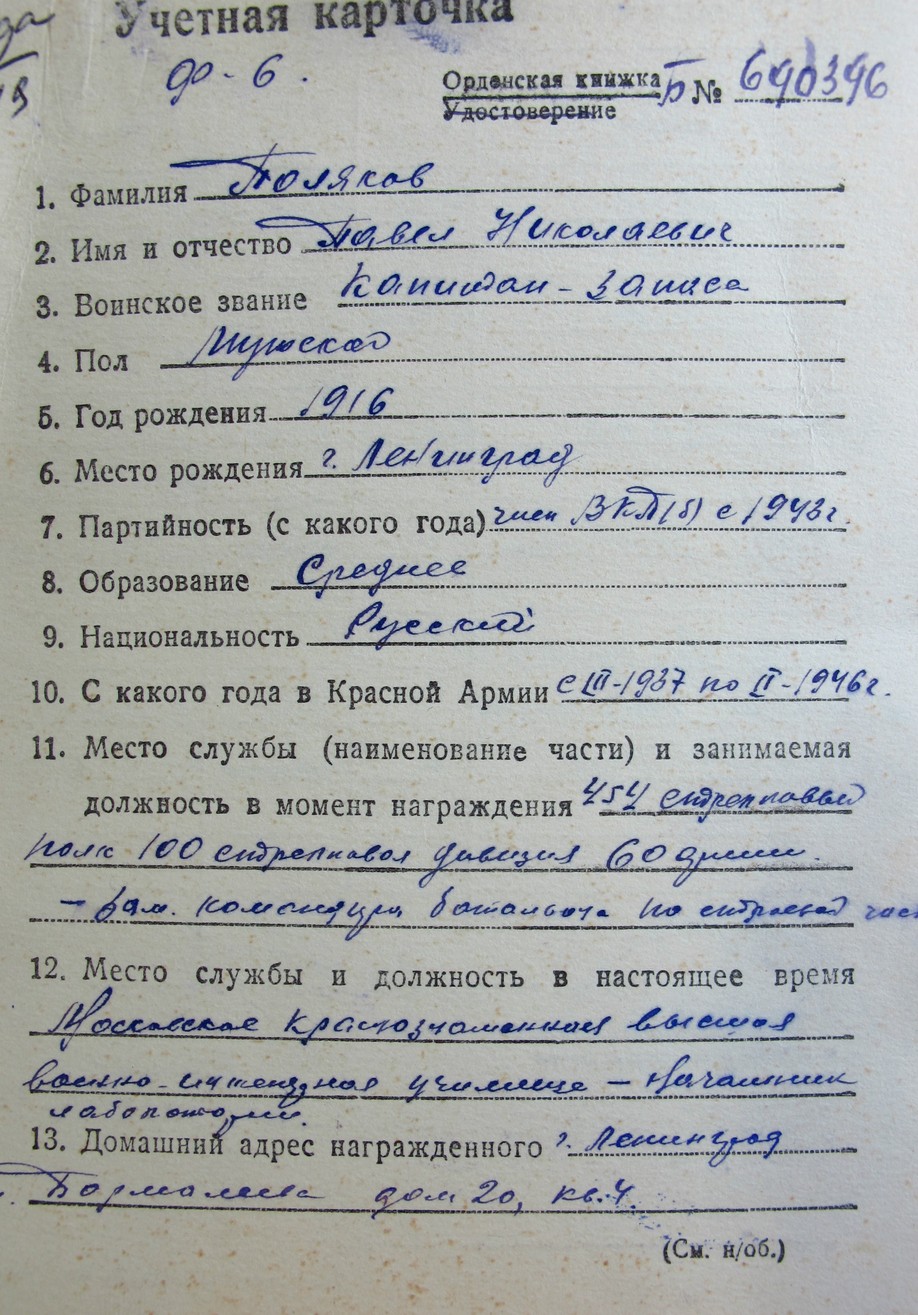 Учетная карточка
ф-6.
Орденская книжка Б № 690396
Удостоверение
1. Фамилия Поляков
2. Имя и отчество Павел Николаевич
3. Воинское звание Капитан-запаса
4. Пол Мужской
5. Год рождения 1916
6. Место рождения г. Ленинград
7. Партийность (с какого года) член ВКП(б) с 1943г.
8. Образование Среднее
9. Национальность Русский
10. С какого года в Красной Армии с III-1937 по II-1946г.
11. Место службы (наименование части) и занимаемая
должность в момент награждения 454 стрелковый
полк 100 стрелковая дивизия 60 армии.
- Зам. командира батальона по строевой част
12. Место службы и должность в настоящее время
Московское краснознаменная высшая
военно-инженерная училище - Начальник
лаборатории.
13. Домашний адрес награжденного г. Ленинград
Бормалеева дом 20, кв. 4.
(См. н/об.)